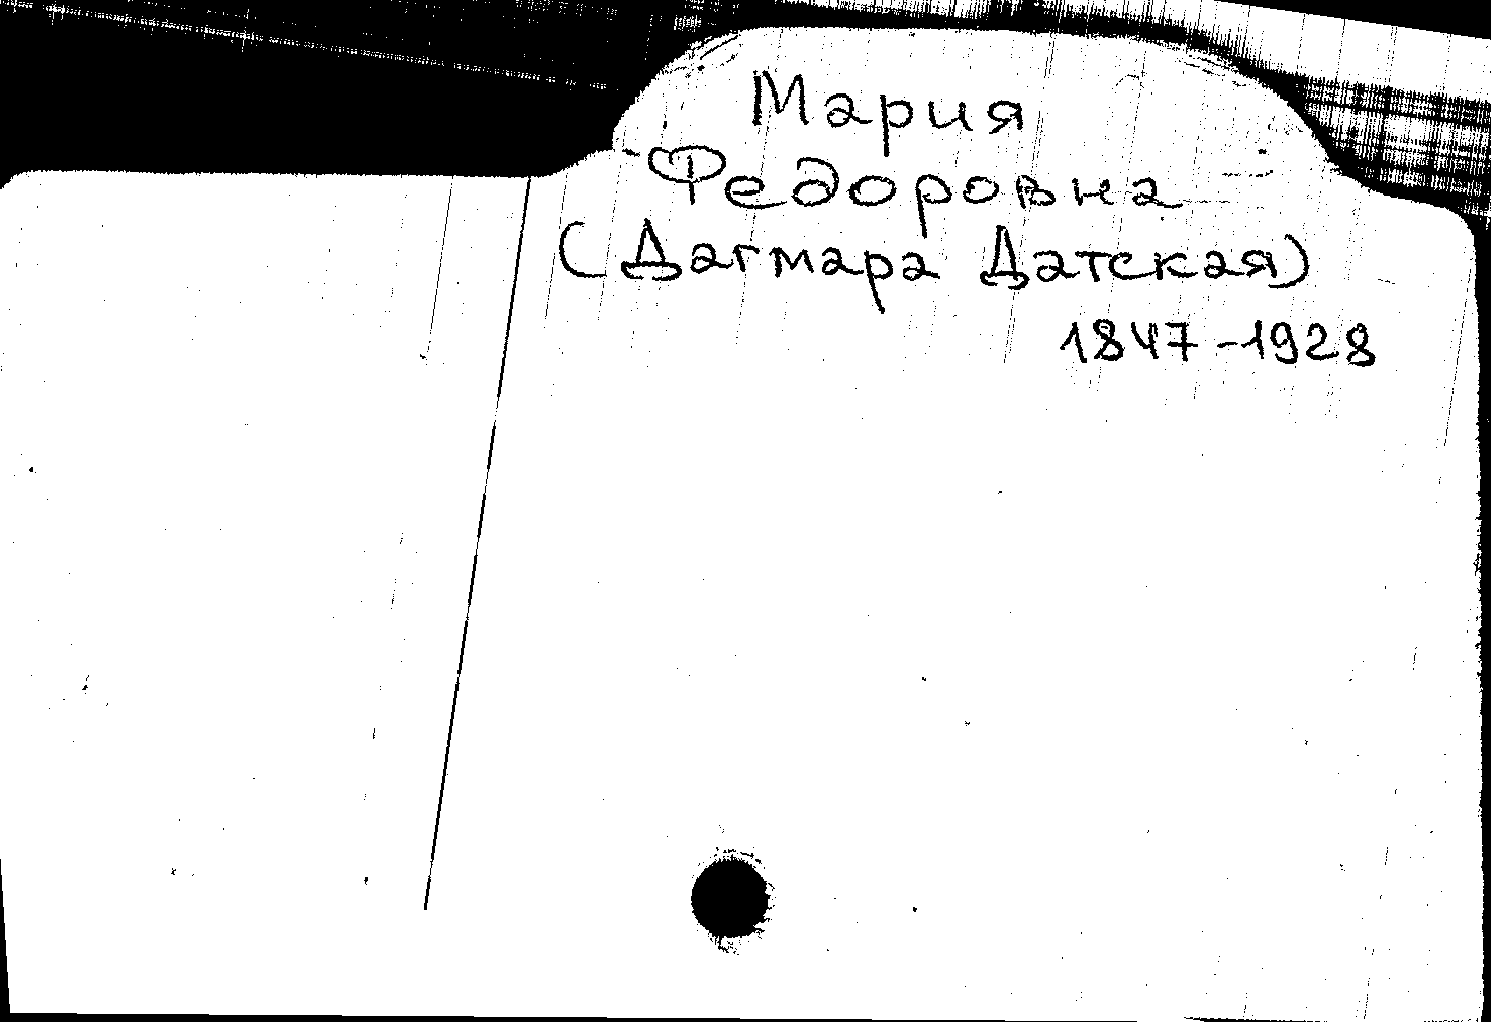 Мария
Федоровна
(Дагмара Датская)
1847-1928